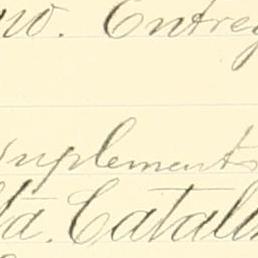 no. Entreg
suplement
ta. Catali